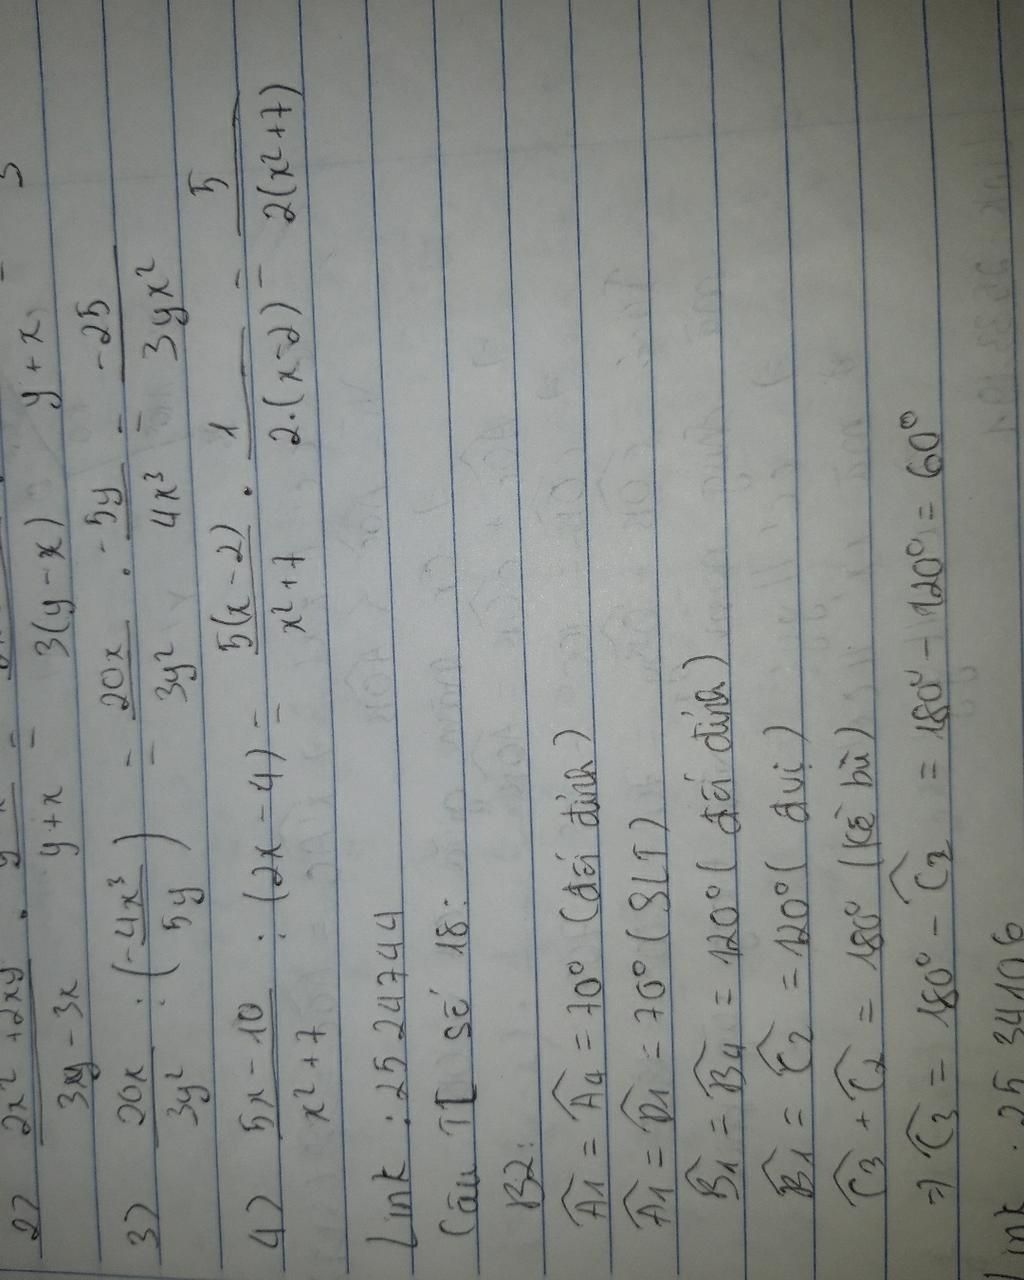 2) 2x² + 2xy / 3xy - 3x · / y + x = / 3(y - x) y + x = 3
3) 20x / 3y² : (-4x³ / 5y) = 20x / 3y² · -5y / 4x³ = -25 / 3yx²
4) 5x - 10 / x² + 7 : (2x - 4) = 5(x - 2) / x² + 7 · 1 / 2·(x - 2) = 5 / 2(x² + 7)
Link : 25 24744
Câu TL số 18:
B2:
Â1 = Â4 = 70° (đối đỉnh)
Â1 = D̂1 = 70° (SLT)
B̂1 = B̂4 = 120° (đối đỉnh)
B̂1 = Ĉ2 = 120° (đ vị)
Ĉ3 + Ĉ2 = 180° (kề bù)
=> Ĉ3 = 180° - Ĉ2 = 180° - 120° = 60°
Link : 25 34106